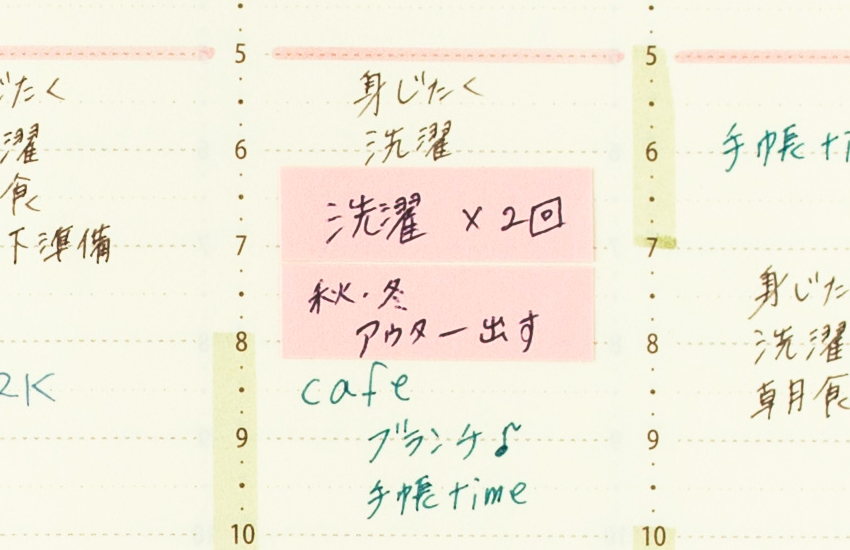 じたく
濯
食
下準備
2K
5
6
7
8
9
10
身じたく
洗濯
洗濯 ×2回
秋・冬
アウター出す
cafe
ブランチ♪
手帳time
5
6
7
8
9
10
手帳ti
身じた
洗濯
朝食